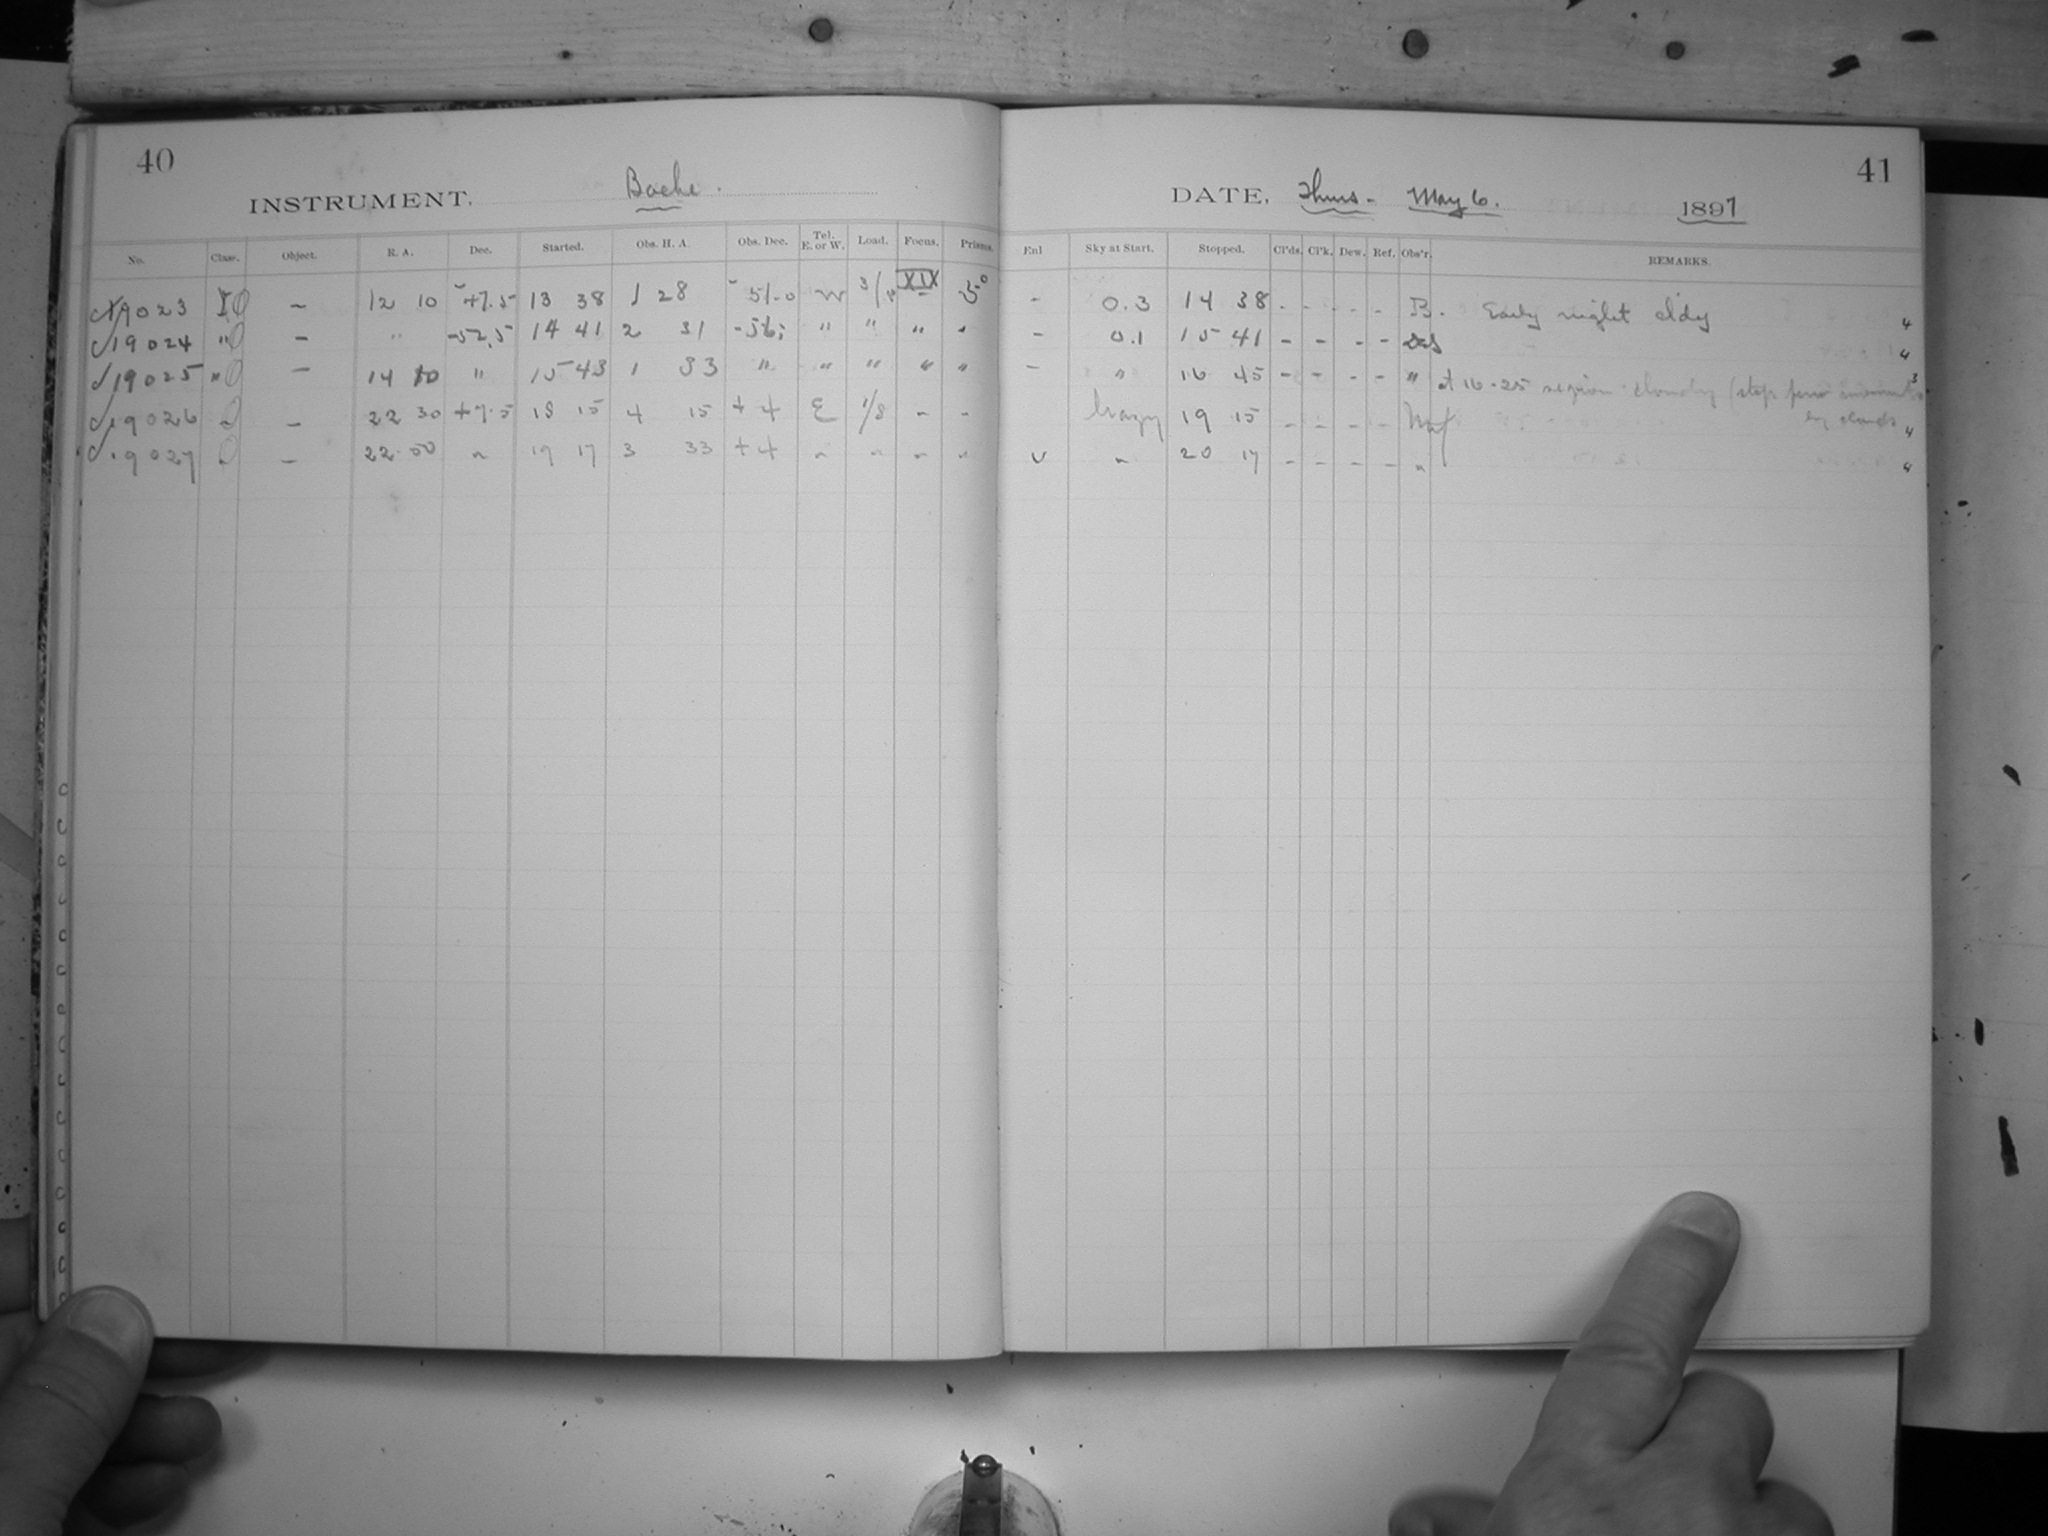 40
INSTRUMENT. Bache.
No. Class. Object. R. A. Dec. Started. Obs. H. A. Obs. Dec. Tel. E. or W. Load. Focus. Prisms.
19023 - 12 10 -47.5 13 38 1 28 -51.0 W 3/8 XIX 5°
19024 " - " -52.5 14 41 2 31 -56; " " " "
19025 " - 14 10 " 15 43 1 33 " " " " "
19026 " - 22 30 +7.5 18 15 4 15 +4 E 1/8 - -
19027 " - 22 50 " 19 17 3 33 +4 " " " "
41
DATE, Thurs. May 6. 1897
Enl Sky at Start. Stopped. Cl'ds. Cl'k. Dew. Ref. Obs'r. REMARKS.
- 0.3 14 38 - - - - B. Early night cldy 4
- 0.1 15 41 - - - - 4
- " 16 45 - - - - " at 16-25 region cloudy (stop few moments 3
by clouds
hazy 19 15 - - - - 4
" 20 17 - - - - " 4